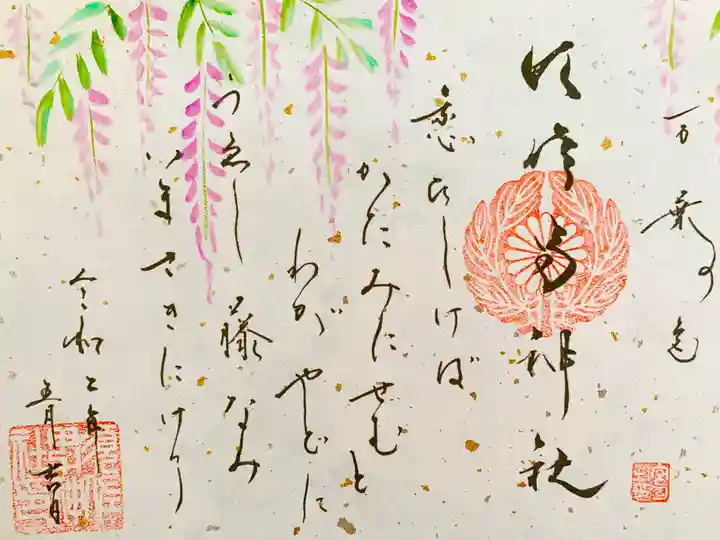 万葉の色
神社
恋ひしけば
かたみにせむと
わがやどに
うゑし 藤なみ
いまさきにけり
令和二年
五月